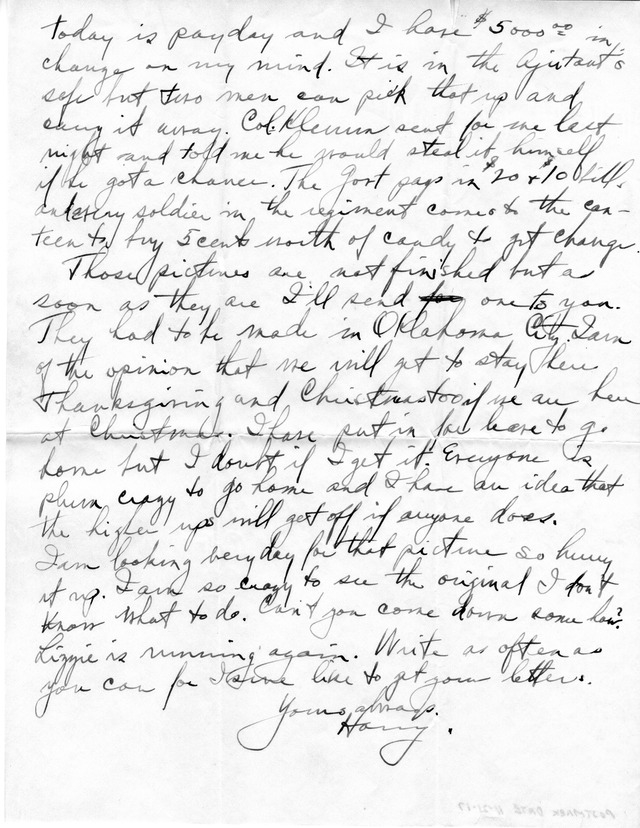 today is payday and I have $5000⁰⁰ in
change on my mind. It is in the Ajutant's
safe but two men can pick that up and
carry it away. Col. Klemm sent for me last
night and told me he would steal it himself
if he got a chance. The Govt pays in $20 + $10 bills
and every soldier in the regiment comes to the can-
teen to buy 5 cents worth of candy & get change.
Those pictures are not finished but as
soon as they are I'll send one to you.
They had to be made in Oklahoma City. I am
of the opinion that we will get to stay here
Thanksgiving and Christmas too if we are here
at Christmas. I have put in for leave to go
home but I doubt if I get it. Everyone is
plum crazy to go home and I have an idea that
the higher ups will get off if anyone does.
I am looking every day for that picture so hurry
it up. I am so crazy to see the original I don't
know what to do. Can't you come down some how?
Lizzie is running again. Write as often as
you can for I sure like to get your letters.
Yours always.
Harry.
POSTMARK DATE 11-21-17